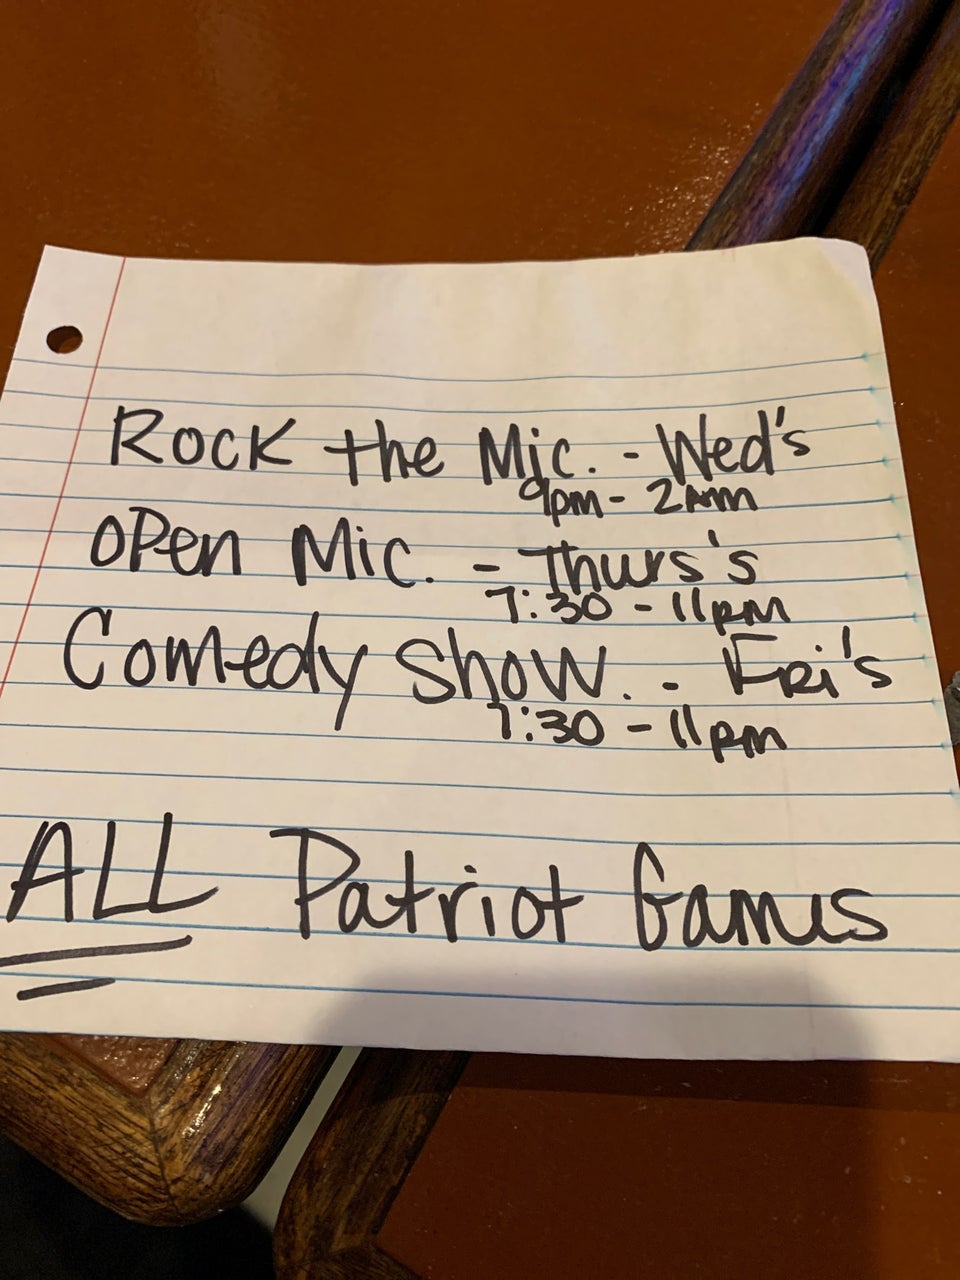 Rock the Mic. - Wed's
9pm - 2am
Open Mic. - Thurs's
7:30 - 11pm
Comedy Show. - Fri's
7:30 - 11pm
ALL Patriot Games